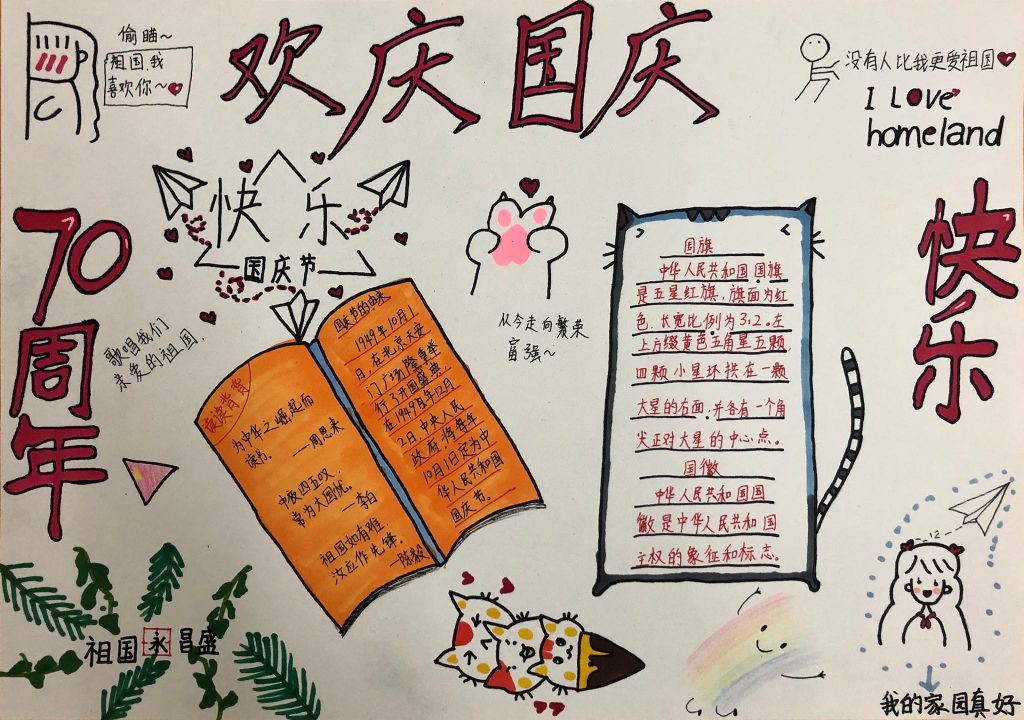 偷瞄~
祖国,我
喜欢你~
欢庆国庆
没有人比我更爱祖国
I LOve
homeland
快乐
国庆节
70周年
快乐
歌唱我们
亲爱的祖国.
从今走向繁荣
富强~
读读背背
为中华之崛起而
读书.
—周恩来
中夜四五叹,
常为大国忧。
—李白
祖国如有难,
汝应作先锋。
—陈毅
国庆节的由来
1949年10月1
日,在北京天安
门广场隆重举
行了开国盛典
在1949年12月
2日中央人民
政府,将每年
10月1日定为中
华人民共和国
国庆节。
国旗
中华人民共和国国旗
是五星红旗,旗面为红
色.长宽比例为3:2。左
上方缀黄色五角星五颗,
四颗小星环拱在一颗
大星的右面.并各有一个角
尖正对大星的中心点。
国徽
中华人民共和国国
徽是中华人民共和国
主权的象征和标志。
祖国永昌盛
12
我的家园真好